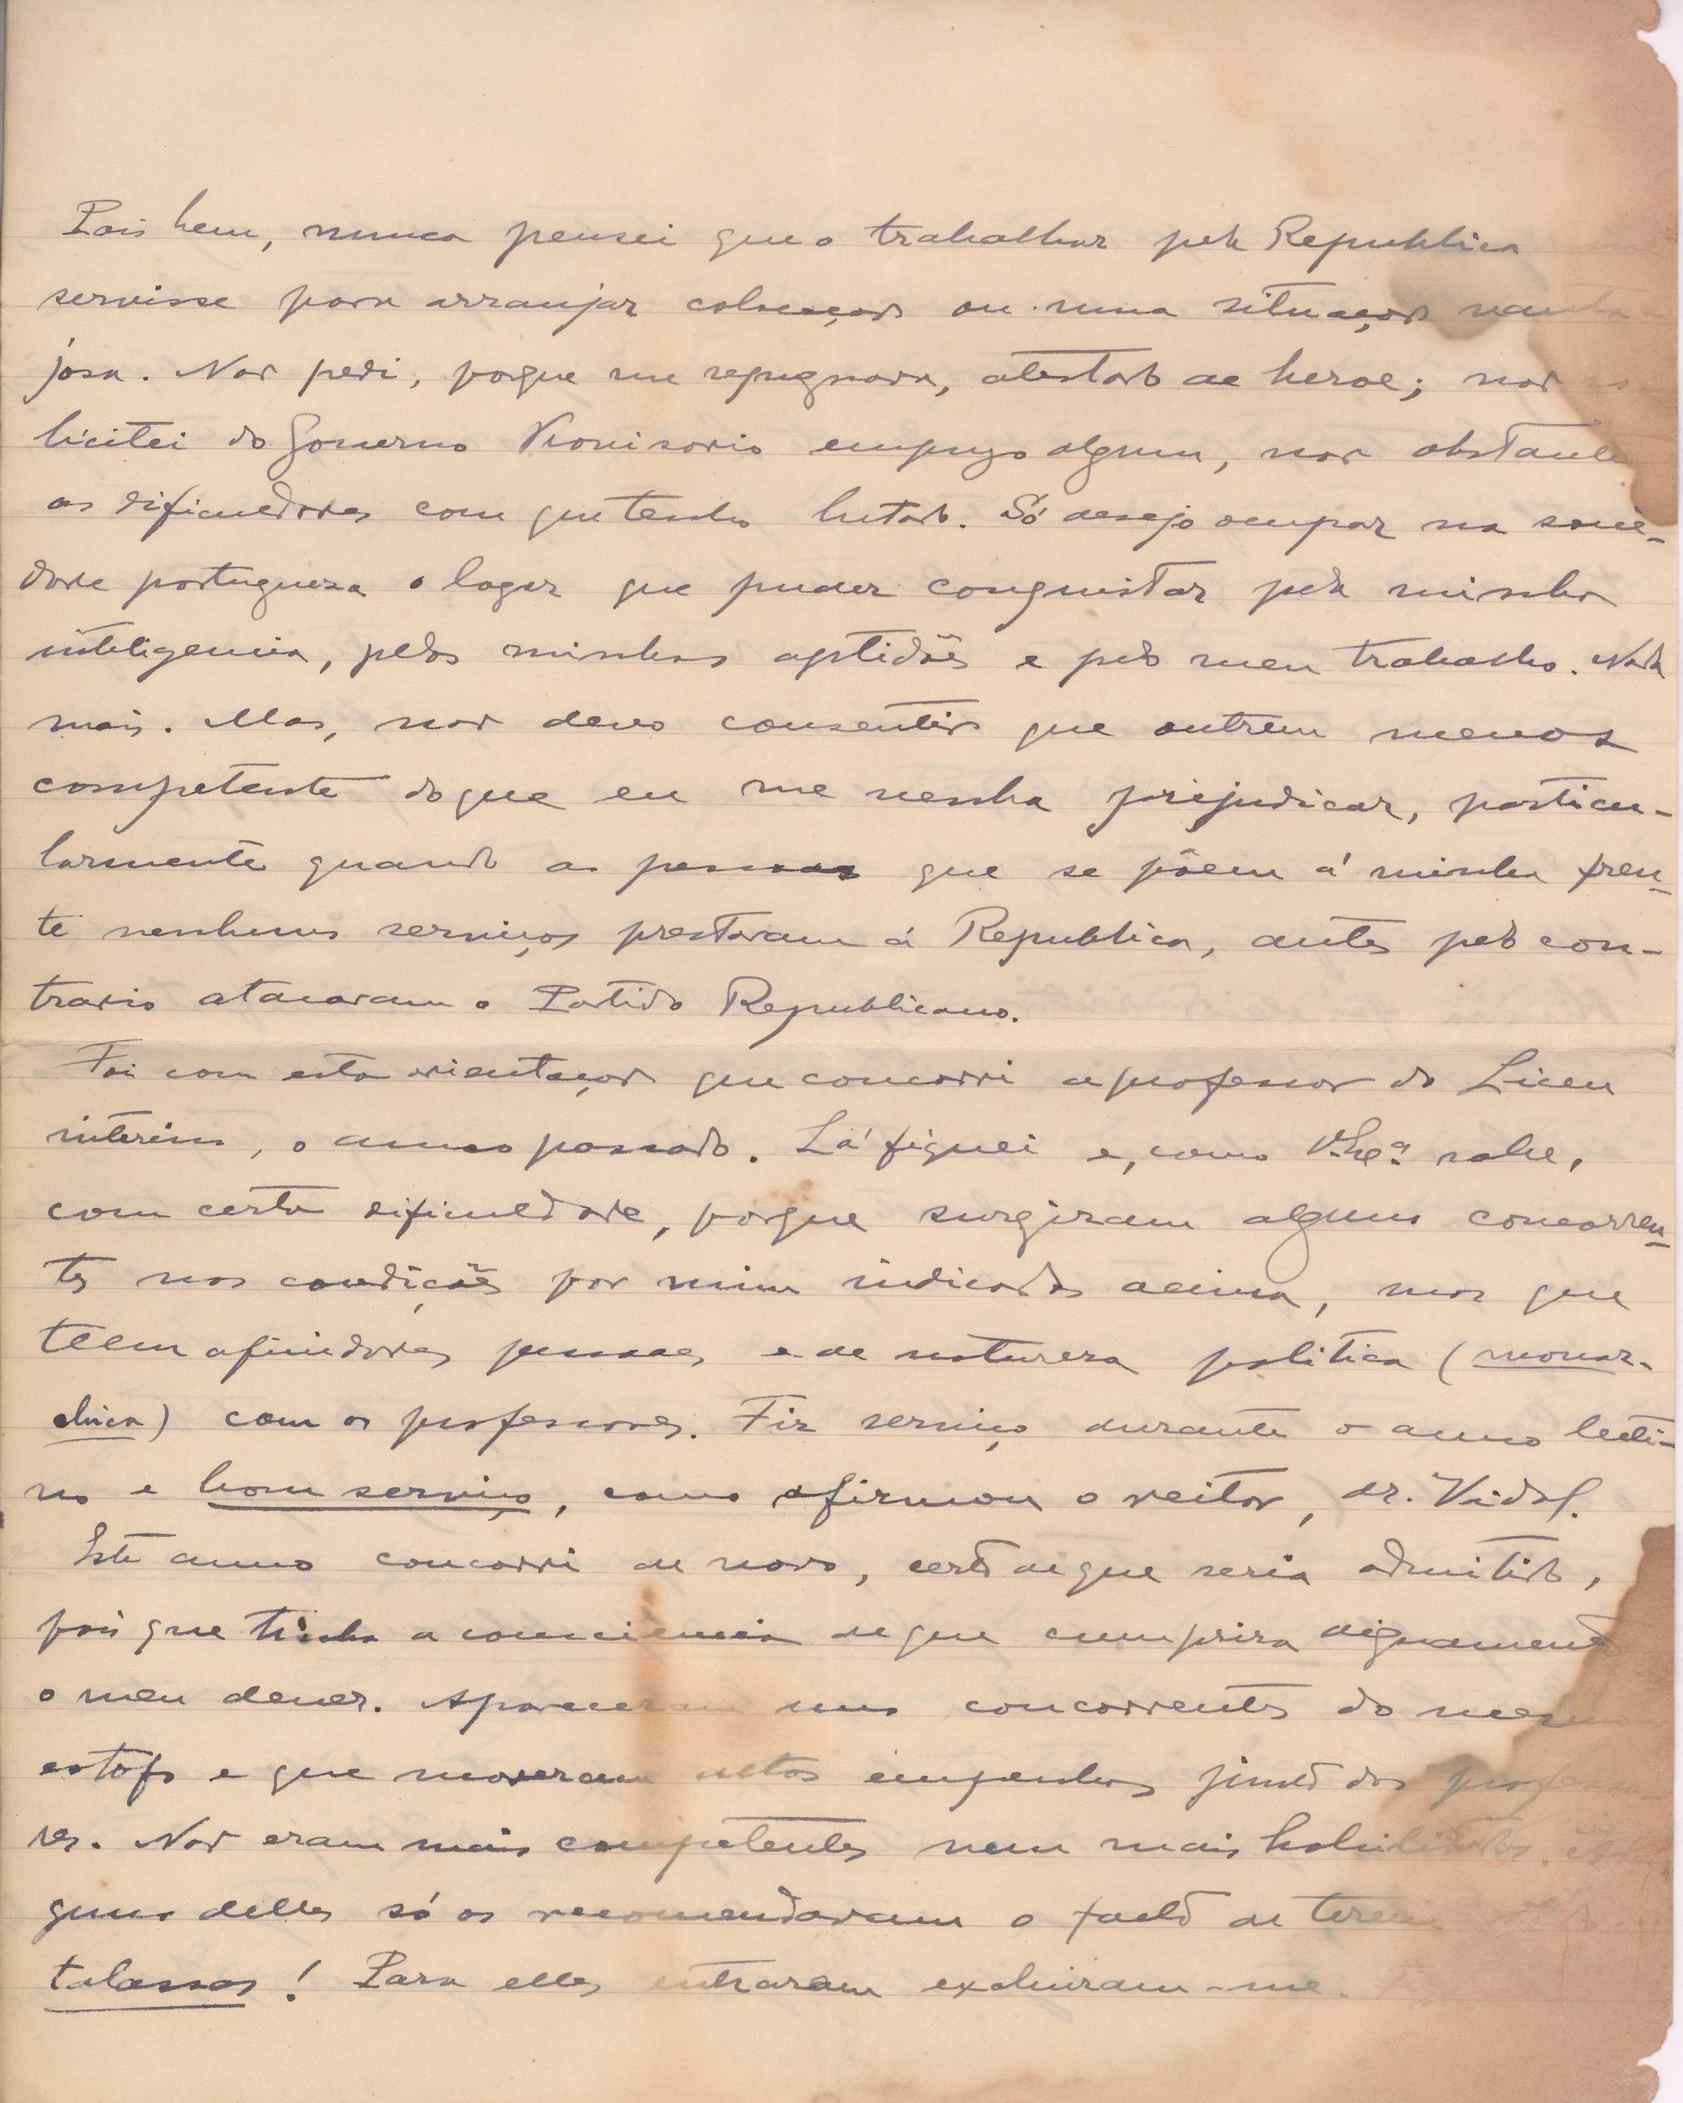 Pois bem, nunca pensei que o trabalhar pela Republica
servisse para arranjar colocação ou uma situação vanta-
josa. Não pedi, porque me repugnava, atestado de heroe; não so-
licitei do Governo Provisorio emprego algum, não obstante
as dificuldades com que tenho lutado. Só desejo ocupar na socie-
dade portuguesa o logar que puder conquistar pela minha
inteligencia, pelas minhas aptidões e pelo meu trabalho. Nada
mais. Mas, não devo consentir que outrem menos
competente do que eu me venha prejudicar, particu-
larmente quando as pessoas que se põem á minha fren-
te nenhuns serviços prestaram á Republica, antes pelo con-
trario atacaram o Partido Republicano.
Foi com esta orientação que concorri a professor do Liceu
interino, o anno passado. Lá fiquei e, como V. Exª sabe,
com certa dificuldade, porque surgiram alguns concorren-
tes nas condições por mim indicadas acima, mas que
teem afinidades pessoaes e de natureza politica (monar-
chica) com os professores. Fiz serviço durante o anno lecti-
vo e bom serviço, como afirmou o reitor, dr. Vidal.
Este anno concorri de novo, certo de que seria admitido,
pois que tinha a consciencia de que cumprira dignamente
o meu dever. Apareceram uns concorrentes do mesmo
estofo e que moveram altos empenhos junto dos professo-
res. Não eram mais competentes nem mais habilitados. Al-
guns delles só os recomendavam o facto de terem
talassas! Para elles entrarem excluiram-me.